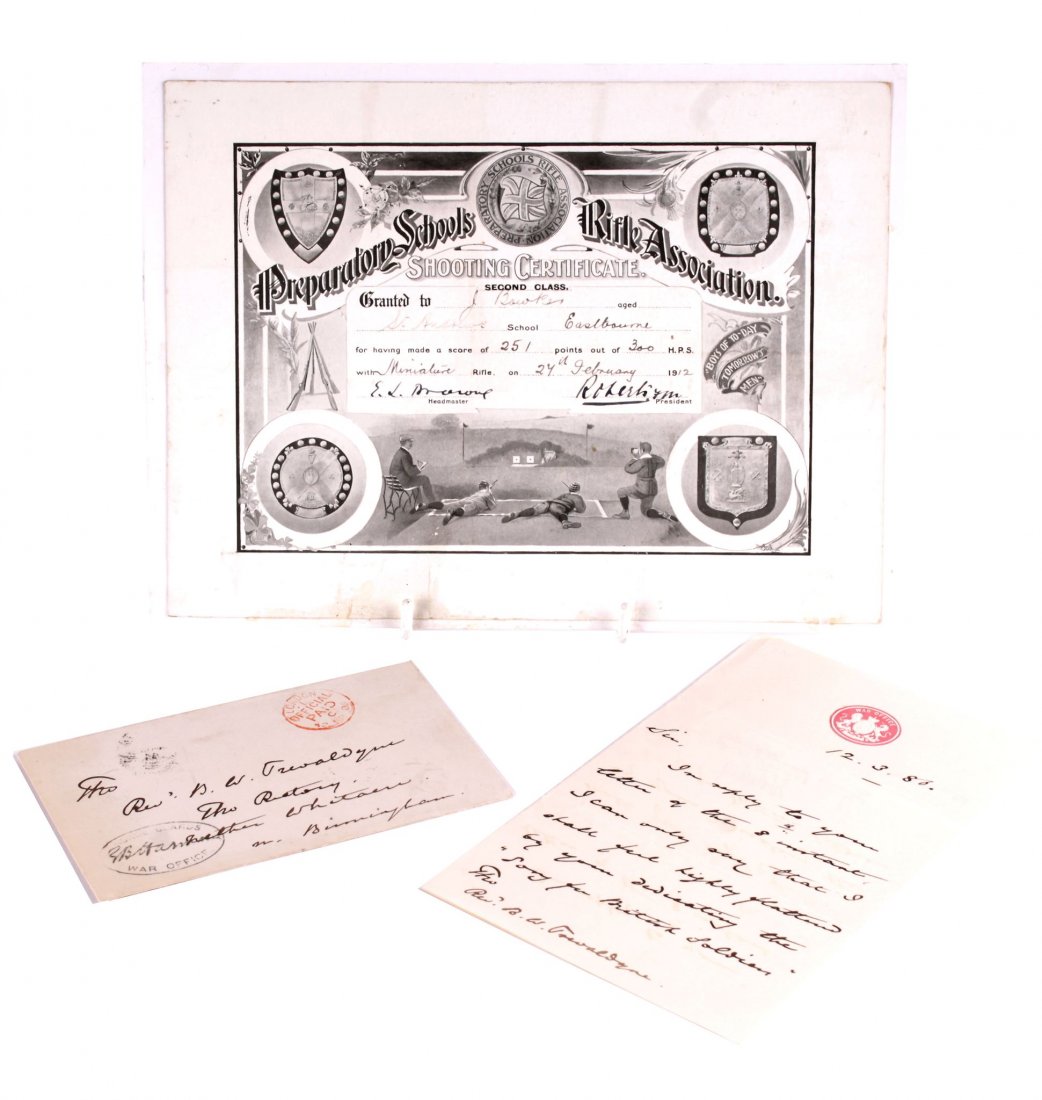 PREPARATORY SCHOOLS RIFLE ASSOCIATION
Preparatory School's Rifle Association.
SHOOTING CERTIFICATE.
SECOND CLASS.
Granted to J Bawkes aged
School Eastbourne
for having made a score of 251 points out of 300 H.P.S.
with Miniature Rifle. on 27th February 1912
E. L. Browne Roberts F.M.
Headmaster President
"BOYS OF TO-DAY
TOMORROW'S
MEN"
LONDON
OFFICIAL
PAID
The
Revd. B. W. Trevaldyn
The Rectory
Nether Whitacre
nr. Birmingham.
WAR OFFICE
WAR OFFICE
12. 3. 86.
Sir,
In reply to your
letter of the 8th instant,
I can only say that I
shall feel highly flattered
by your dedicating the
"Song for British Soldiers"
The
Revd. B. W. Trevaldyn.